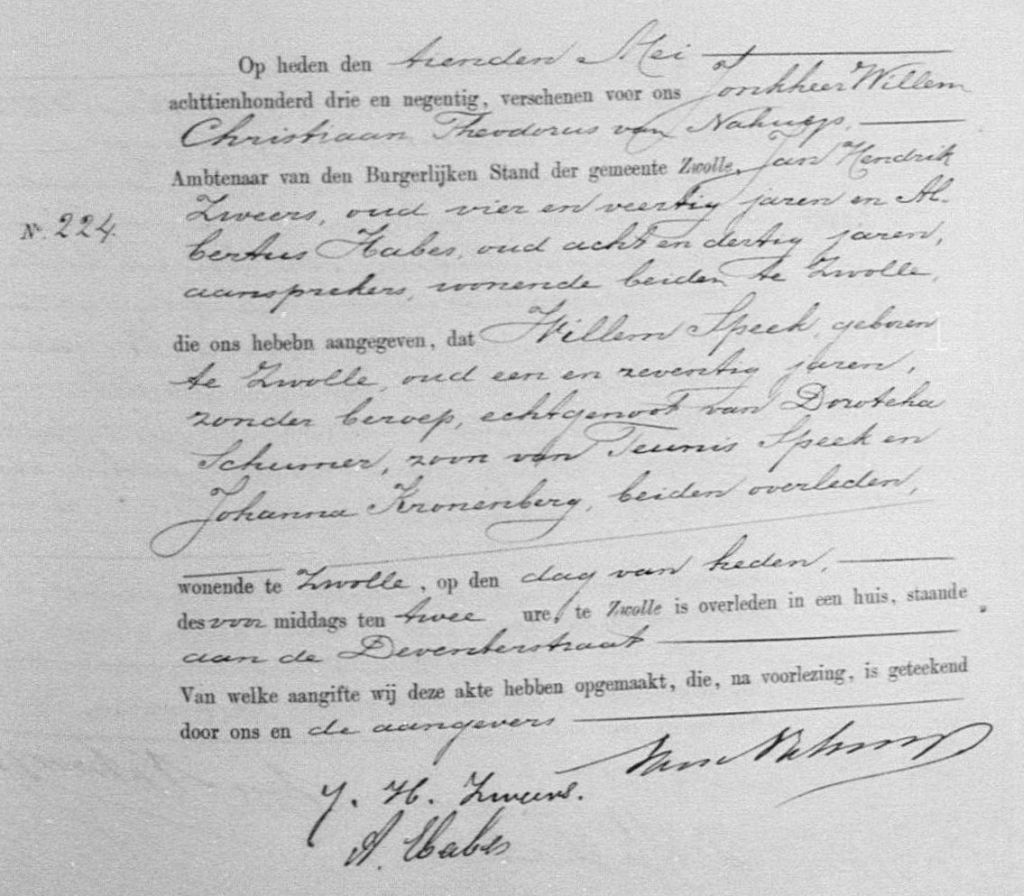 Op heden den tienden Mei
achttienhonderd drie en negentig, verschenen voor ons Jonkheer Willem
Christiaan Theodorus van Nahuys,
Ambtenaar van den Burgerlijken Stand der gemeente Zwolle, Jan Hendrik
Nº. 224. Zweers, oud vier en veertig jaren en Al-
bertus Habes, oud acht en dertig jaren,
aansprekers, wonende beiden te Zwolle,
die ons hebebn aangegeven, dat Willem Speek, geboren
te Zwolle, oud een en zeventig jaren,
zonder beroep, echtgenoot van Doroteha
Schumer, zoon van Teunis Speek en
Johanna Kronenberg, beiden overleden,
wonende te Zwolle, op den dag van heden,
des voor middags ten twee ure, te Zwolle is overleden in een huis, staande
aan de Deventerstraat
Van welke aangifte wij deze akte hebben opgemaakt, die, na voorlezing, is geteekend
door ons en de aangevers
Van Nahuys
J. H. Zweers.
A. Habes